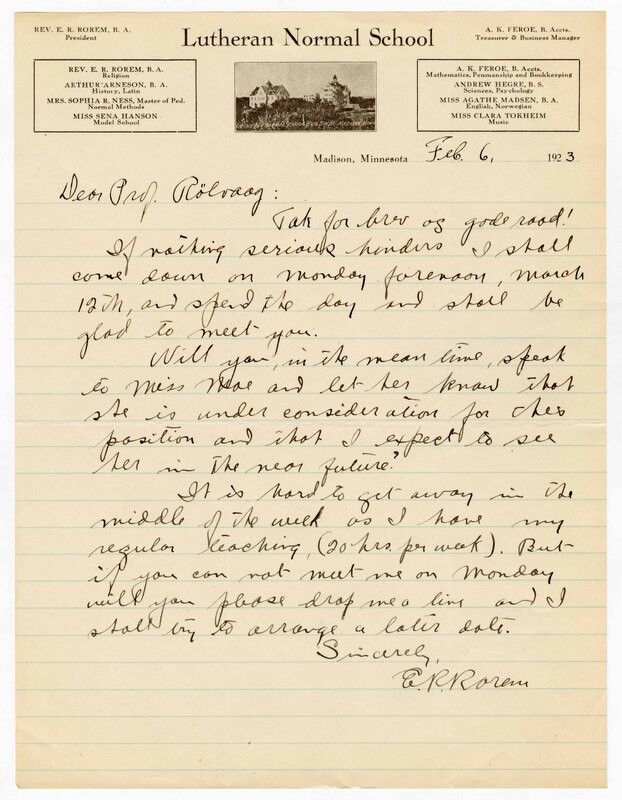 REV. E. R. ROREM, B. A.
President
Lutheran Normal School
A. K. FEROE, B. Accts.
Treasurer & Business Manager
REV. E. R. ROREM, B.A.
Religion
ARTHUR ARNESON, B.A.
History, Latin
MRS. SOPHIA R. NESS, Master of Ped.
Normal Methods
MISS SENA HANSON
Model School
A. K. FEROE, B. Accts.
Mathematics, Penmanship and Bookkeeping
ANDREW HEGRE, B. S.
Sciences, Psychology
MISS AGATHE MADSEN, B. A.
English, Norwegian
MISS CLARA TOKHEIM
Music
Madison, Minnesota Feb. 6, 1923
Dear Prof. Rölvaag:
Tak for brev og gode raad!
If nothing serious hinders I shall
come down on Monday forenoon, March
12th, and spend the day and shall be
glad to meet you.
Will you, in the mean time, speak
to Miss Moe and let her know that
she is under consideration for the
position and that I expect to see
her in the near future?
It is hard to get away in the
middle of the week as I have my
regular teaching, (20 hrs. per week). But
if you can not meet me on Monday
will you please drop me a line and I
shall try to arrange a later date.
Sincerely,
E. R. Rorem